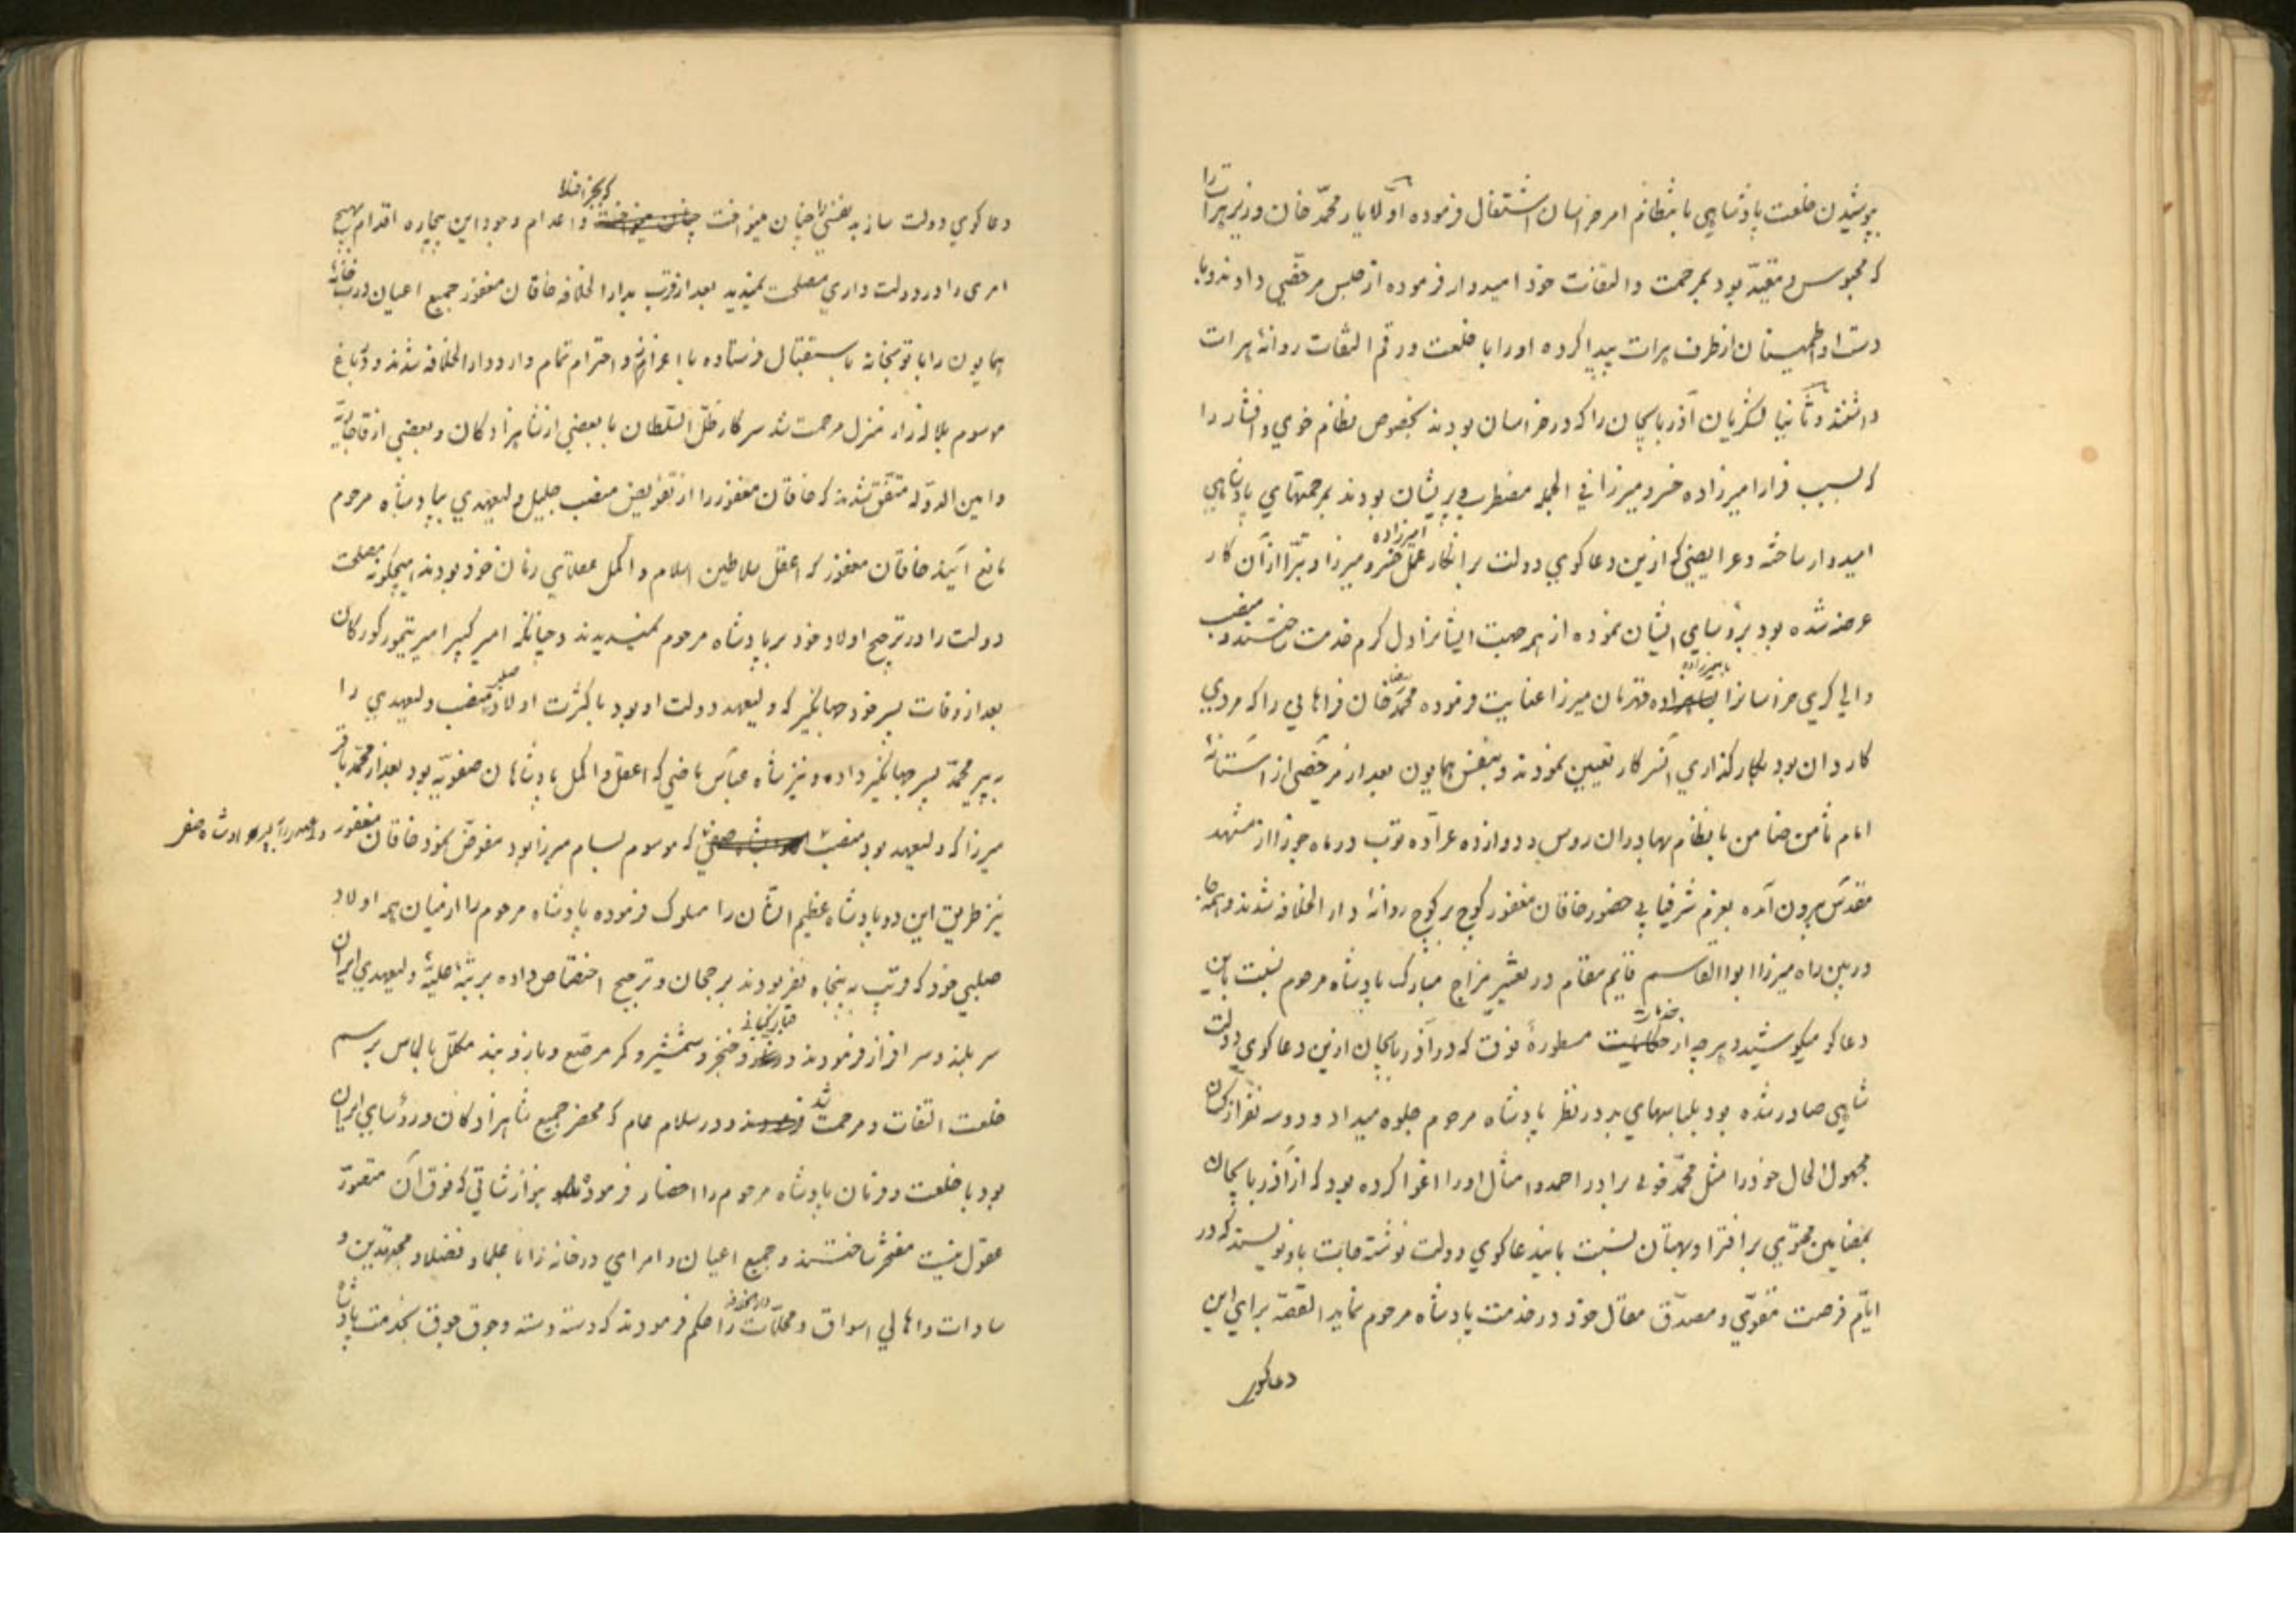 بپوشیدن خلعت پادشاهی بانتظام امر خراسان اشتغال فرموده اولا یار محمّد خان وزیر هرات را
که محبوس و مقیّد بود بمرحمت و التفات خود امیدوار فرموده از حبس مرخّصی دادند و با
دست او اطمینان از طرف هرات پیدا کرده او را با خلعت و رقم التفات روانهٔ هرات
داشتند و ثانیا لشکریان آذربایجان را که در خراسان بودند بخصوص نظام خوی و افشار را
که بسبب فرار امیرزاده خسرو میرزا فی الجمله مضطرب و پریشان بودند بمرحمتهای پادشاهی
امیدوار ساخته و عرایضی که ازین دعاکوی دولت بر انکار عمل امیرزاده خسرو میرزا و تبرّا از آن کار
عرضه شده بود برؤسای ایشان نموده از هر جهت ایشانرا دل کرم خدمت ساختند و منصب
والی کری خراسانرا بامیرزاده قهرمان میرزا عنایت فرموده محمّد رضا خان فراهانی را که مردی
کاردان بود بکار کذاری آن سرکار تعیین نمودند و بنفس همایون بعد از مرخّصی از آستانهٔ
امام ثامن ضامن با نظام بهادران روس و دوازده عرّاده توپ در ماه جوزا از مشهد
مقدّس بیرون آمده بعزم شرفیابی حضور خاقان مغفور کوچ بر کوچ روانهٔ دار الخلافه شدند و همه جا
در بین راه میرزا ابو القاسم قایم مقام در تغییر مزاج مبارک پادشاه مرحوم نسبت باین
دعاکو میکوشید و هر چه از خدمات مسطورهٔ فوق که در آذربایجان ازین دعاکوی دولت
شاهی صادر شده بود بلباسهای بد در نظر پادشاه مرحوم جلوه میداد و دو سه نفر از کسان
مجهول الحال خود را مثل محمّد خویی برادر احمد و امثال او را اغوا کرده بود که از آذربایجان
بمضامین محتوی بر افترا و بهتان نسبت باین دعاکوی دولت نوشته جات باو نویسند که در
ایّام فرصت مقوّی و مصدّق مقال خود در خدمت پادشاه مرحوم نماید القصّه برای این
دعاکوی
دعاکوی دولت سازی بنفسی را چنان مینواخت که بجز افنا و اعدام وجود این بیچاره اقدام بهیچ
امری را در دولت داری مصلحت نمیدید بعد از قرب بدار الخلافه خاقان مغفور جمیع اعیان درب خانهٔ
همایون را با توپخانه باستقبال فرستاده با اعزاز و احترام تمام وارد دار الخلافه شدند و در باغ
موسوم بلاله زار منزل مرحمت شد سرکار ظلّ السّلطان با بعضی از شاهزادکان و بعضی از قاجاریّه
و امین الدّوله متّفق شدند که خاقان مغفور را از تفویض منصب جلیل ولیعهدی بپادشاه مرحوم
مانع آیند خاقان مغفور که اعقل سلاطین اسلام و اکمل عقلای زمان خود بودند هیچکونه مصلحت
دولت را در ترجیح اولاد خود بر پادشاه مرحوم نمیدیدند و چنانکه امیر کبیر امیر تیمور کورکان
بعد از وفات پسر خود جهانکیر که ولیعهد دولت او بود با کثرت اولاد صلبی منصب ولیعهدی را
به پیر محمّد پسر جهانکیر داده و نیز شاه عباس ماضی که اعقل و اکمل پادشاهان صفویّه بود بعد از محمّد باقر
میرزا که ولیعهد بود منصب که موسوم بسام میرزا بود مفوّض نمود خاقان مغفور ولیعهدی را به پسر او شاه صفی
نیز طریق این دو پادشاه عظیم الشّان را مسلوک فرموده پادشاه مرحوم را از میان همه اولاد
صلبی خود که قریب به پنجاه نفر بودند برجحان و ترجیح اختصاص داده برتبهٔ علیّهٔ ولیعهدی ایران
سر بلند و سر افراز فرمودند و قبای کیانی و خنجر و شمشیر و کمر مرصّع و بازو بند مکلّل بالماس برسم
خلعت التفات و مرحمت شد و در سلام عام که محضر جمیع شاهزادکان و رؤسای ایران
بود با خلعت و فرمان پادشاه مرحوم را احضار فرموده بنوازشاتی که فوق آن متصوّر
عقول نیست مفتخر ساختند و جمیع اعیان و امرای درخانه را با علما و فضلا و مجتهدین و
سادات و اهالی اسواق و محلّات دار الخلافه را حکم فرمودند که دسته دسته و جوق جوق بخدمت پادشاه